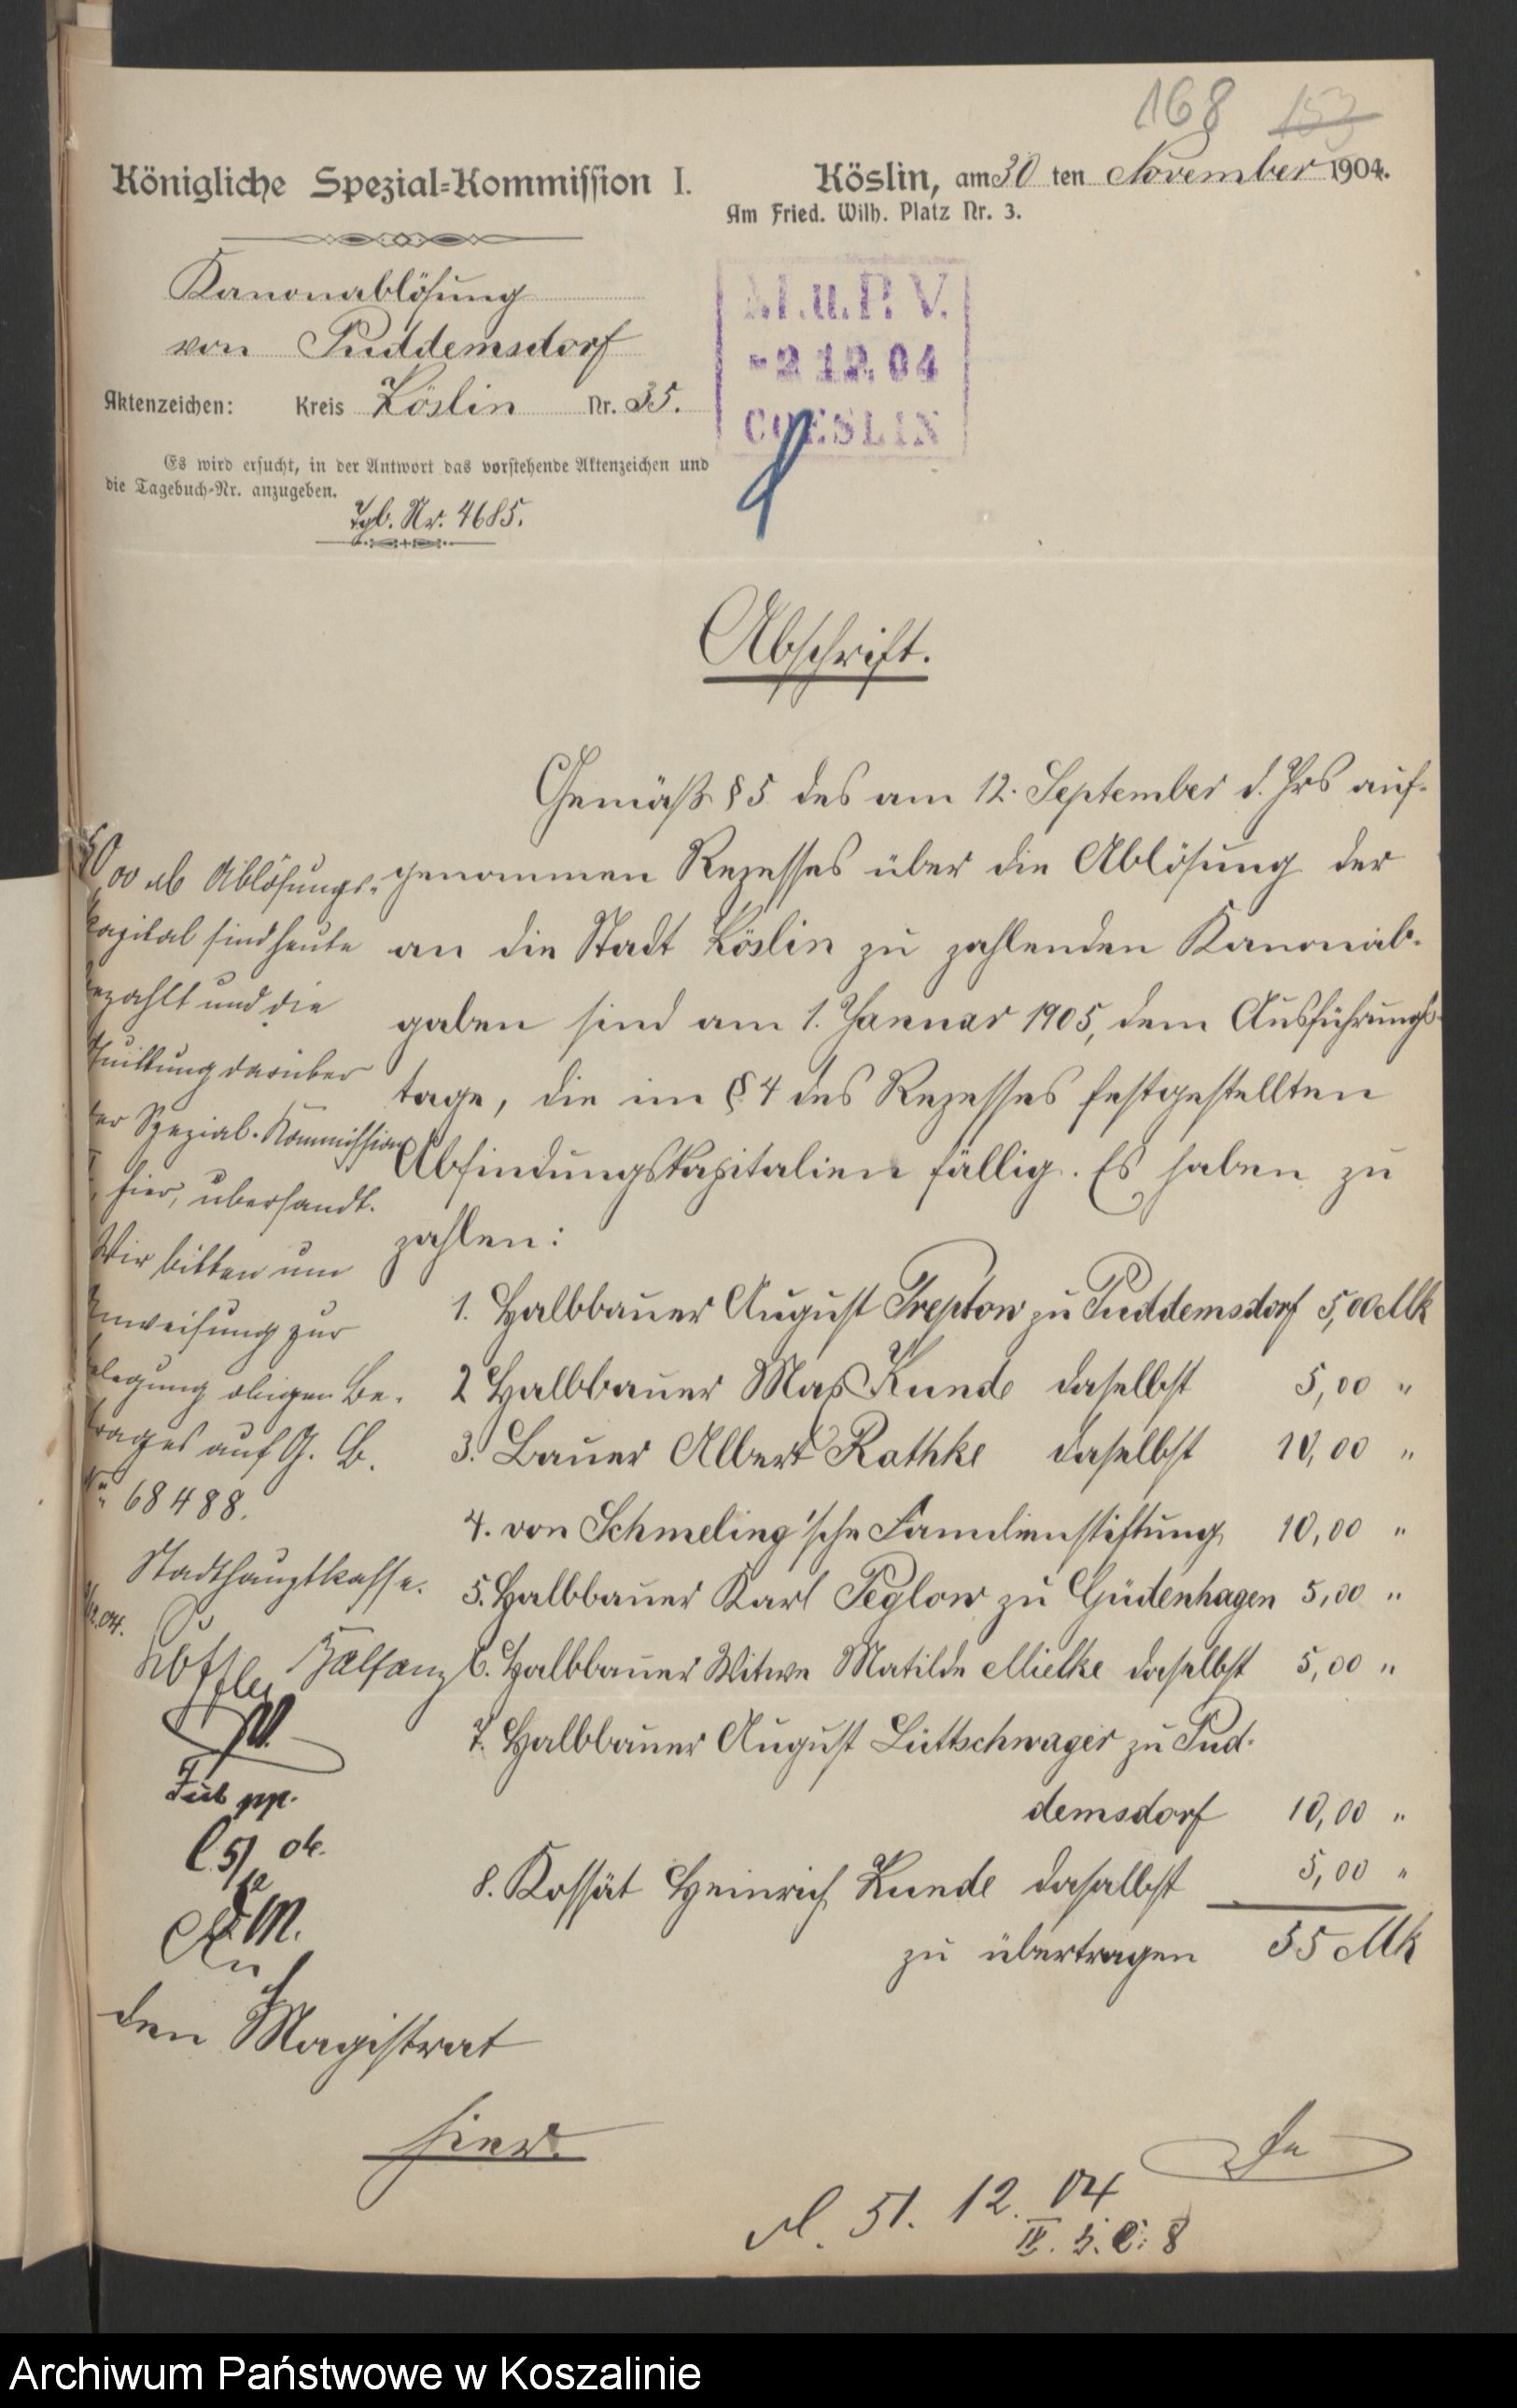 168 153
Königliche Spezial-Kommission I.
Köslin, am 30 ten November 1904.
Am Fried. Wilh. Platz Nr. 3.
Kanonablösung
von Puddemsdorf
Aktenzeichen: Kreis Köslin Nr. 35.
Es wird ersucht, in der Antwort das vorstehende Aktenzeichen und
die Tagebuch-Nr. anzugeben.
Tgb. Nr. 4685.
M.u.P.V.
-2.12.04
COESLIN
Abschrift.
Gemäß § 5 des am 12. September d. Jrs auf-
genommenen Rezesses über die Ablösung der
an die Stadt Köslin zu zahlenden Kanonab-
gaben sind am 1. Januar 1905, dem Ausführungs-
tage, die im § 4 des Rezesses festgestellten
Abfindungskapitalien fällig. Es haben zu
zahlen:
1. Halbbauer August Treptow zu Puddemsdorf 5,00 Mk
2 Halbbauer Max Kunde daselbst 5,00 "
3. Bauer Albert Rathke daselbst 10,00 "
4. von Schmeling'sche Familienstiftung 10,00 "
5. Halbbauer Karl Peglow zu Güdenhagen 5,00 "
6. Halbbauer Witwe Matilde Mielke daselbst 5,00 "
7. Halbbauer August Lüttschwager zu Pud-
demsdorf 10,00 "
8. Kossät Heinrich Kunde daselbst 5,00 "
zu übertragen 55 Mk
00 M Ablösungs-
kapital sind heute
bezahlt und die
Quittung darüber
der Spezial-Kommission
I, hier, übersandt.
Wir bitten um
Anweisung zur
Belegung obigen Be-
trages auf G. B.
No 68488.
Stadthauptkasse.
An
den Magistrat
hier.
51. 12. 04